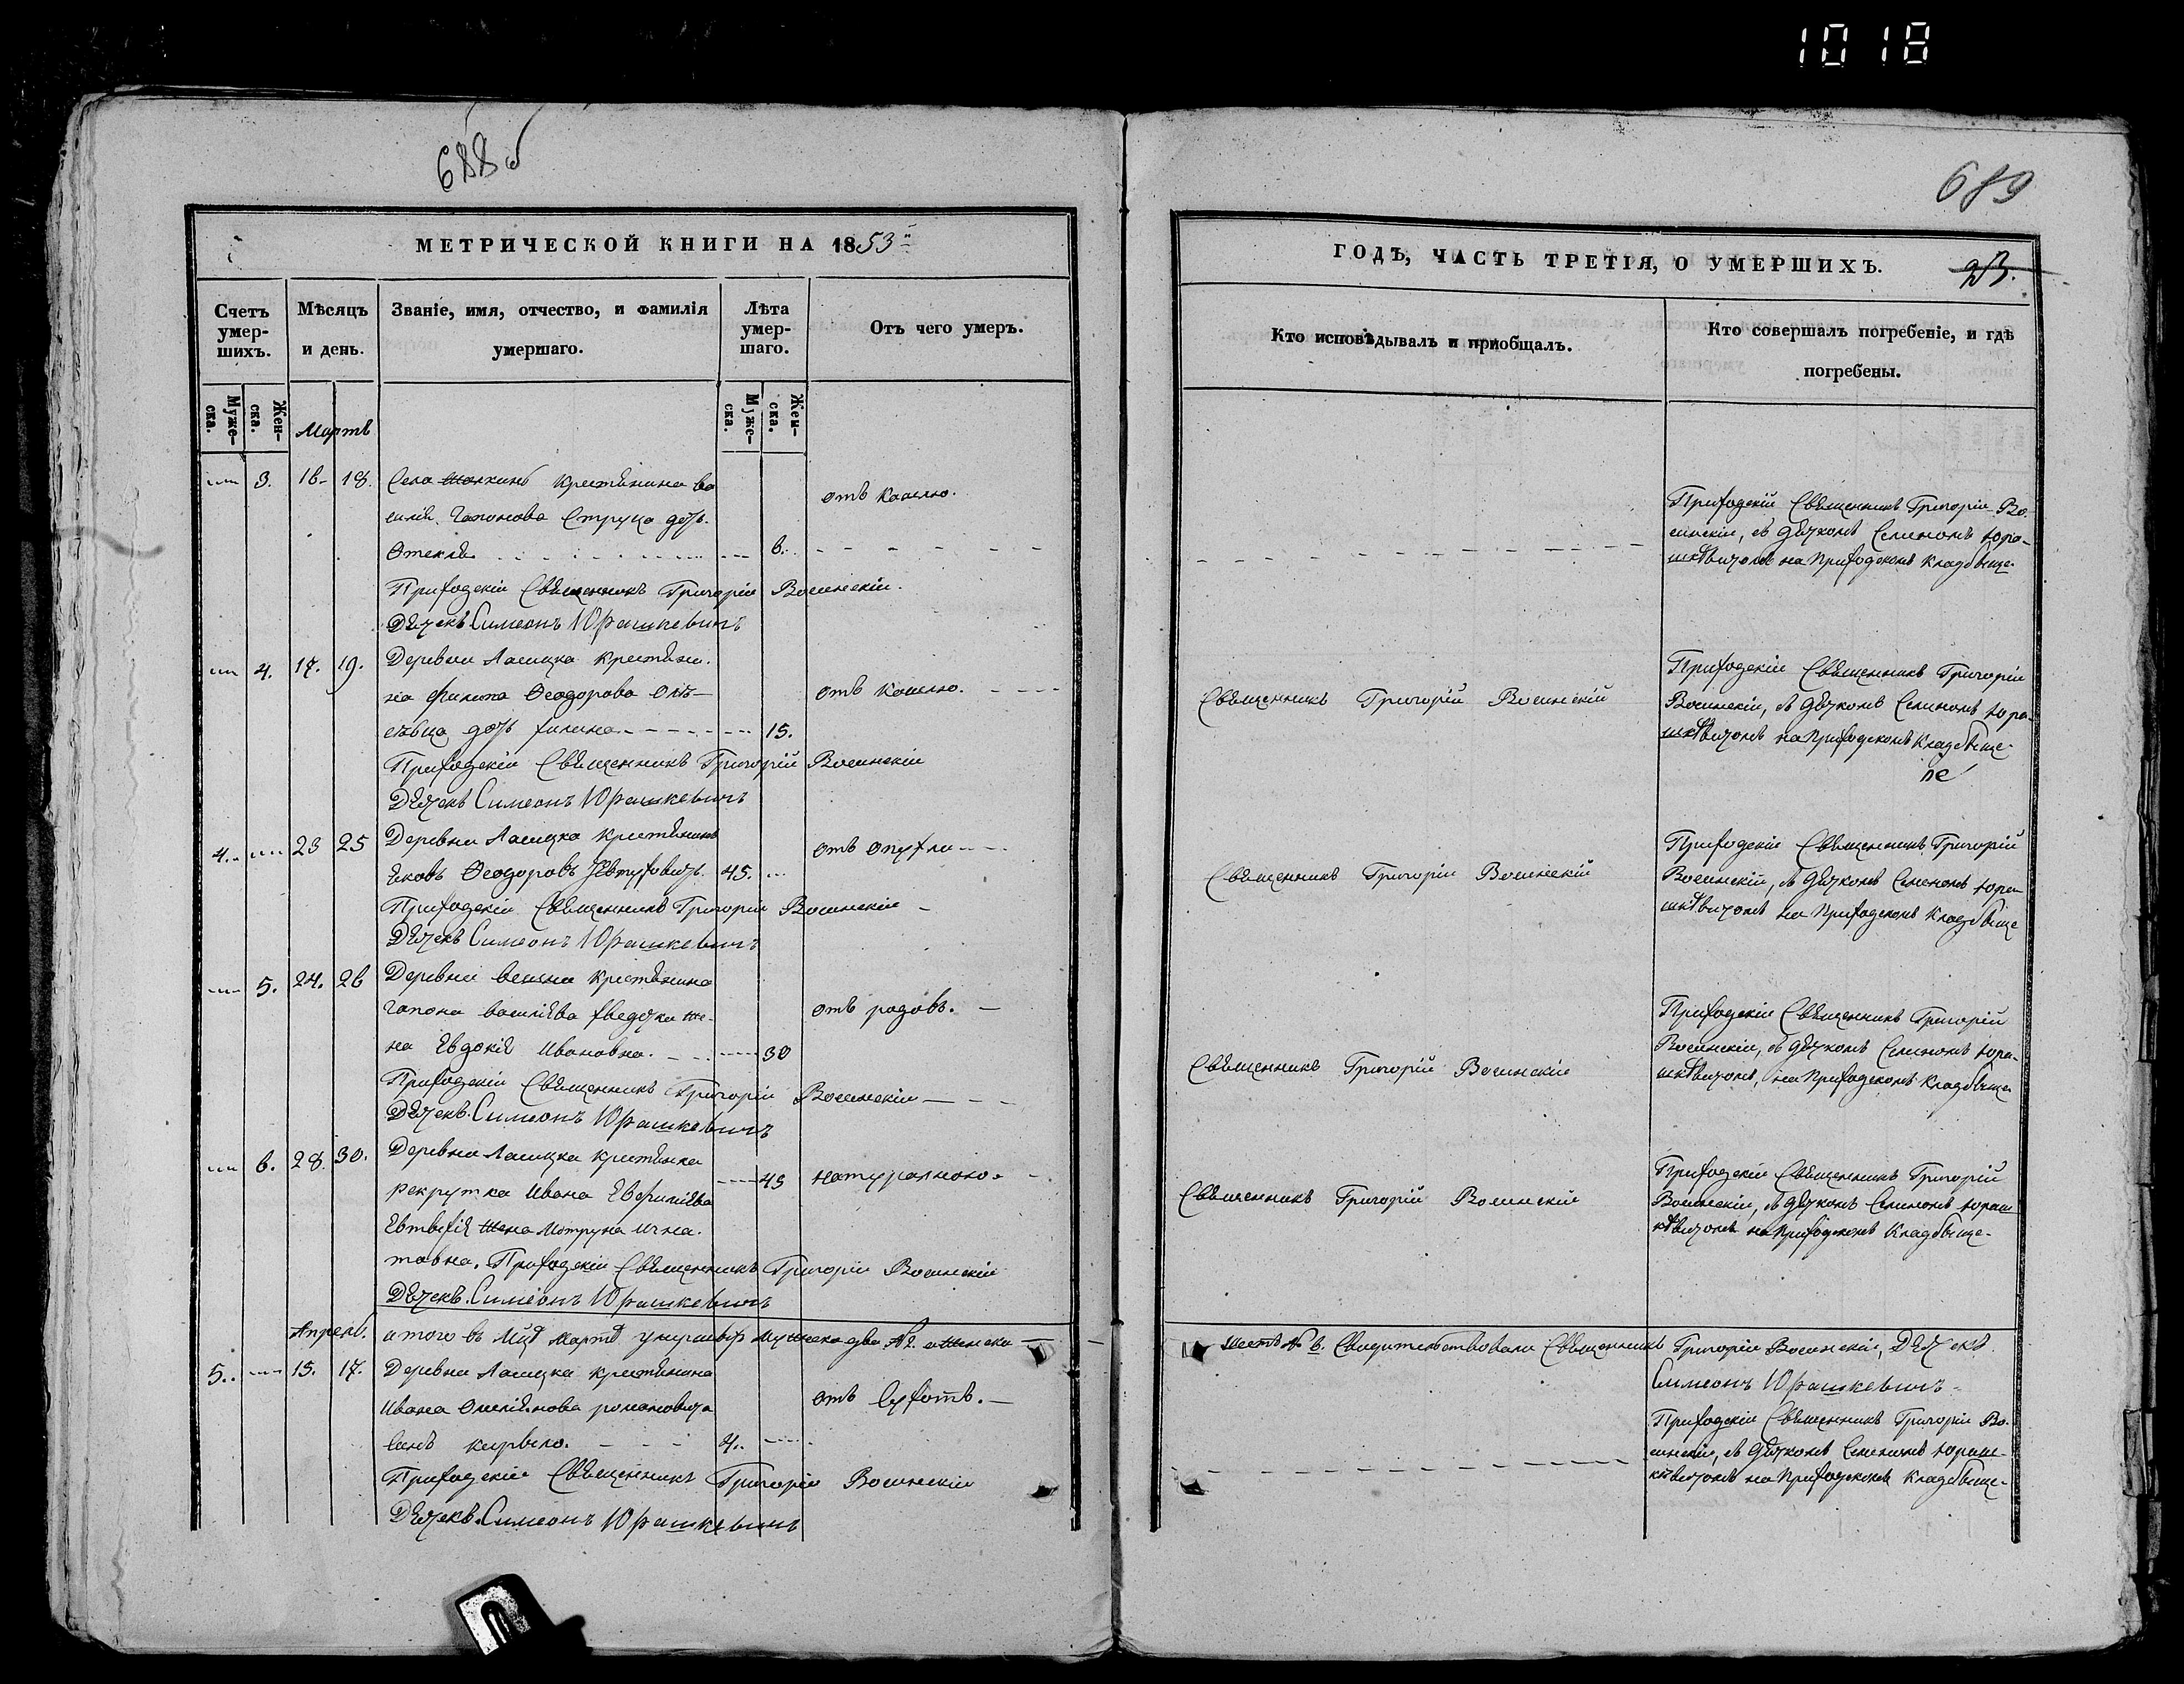 1018
688 об
689
МЕТРИЧЕСКОЙ КНИГИ НА 1853й
ГОДЪ, ЧАСТЬ ТРЕТІЯ, О УМЕРШИХЪ.
23.
Счетъ умер-шихъ.
Мѣсяцъ и день.
Званіе, имя, отчество, и фамилія умершаго.
Лѣта умер-шаго.
Отъ чего умеръ.
Кто исповѣдывалъ и пріобщалъ.
Кто совершалъ погребеніе, и гдѣ погребены.
Муже-ска.
Жен-ска.
Муже-ска.
Жен-ска.
Мартъ
3. 16 18. Села крестянина Ва
силія Гапонова Струка дочь
6.
отъ кашлю.
Приходскій Священникъ Григорій Восинскій.
Дячекъ Симеонъ Юрашкевичъ
Приходскій Священникъ Григорій Во-
синскій, съ дячкомъ Семіономъ Юра-
шкѣвичомъ на Приходскомъ Кладбище
4. 17. 19. Деревни Ласицка крестяни
на Филипа Феодорова
дочь 15.
отъ кашлю.
Приходскій Священникъ Григорій Восинскій
Дячекъ Симеонъ Юрашкевичъ
Священникъ Григорій Восинскій
Приходскій Священникъ Григорій
Восинскій, съ дячкомъ Семіономъ Юра-
шкѣвичомъ на Приходскомъ Кладбище
4. 23 25 Деревни Ласицка крестянинъ
Яковъ Феодоровъ Евтуховичъ 45.
отъ опухли
Приходскій Священникъ Григорій Восинскій
Дячекъ Симеонъ Юрашкевичъ
Священникъ Григорій Восинскій
Приходскій Священникъ Григорій
Восинскій, съ дячкомъ Семіономъ Юра
шкѣвичомъ на Приходскомъ Кладбище
5. 24. 26 Деревни крестянина
Гапона Василіева же-
на Евдокія Ивановна. 30
отъ родовъ.
Приходскій Священникъ Григорій Восинскій
Дячекъ Симеонъ Юрашкевичъ
Священникъ Григорій Восинскій
Приходскій Священникъ Григорій
Восинскій, съ дячкомъ Семіономъ Юра-
шкѣвичомъ, на Приходскомъ Кладбище
6. 28. 30. Деревни Ласицка крестянка
рекрутка Ивана Евфиміева
жена Мотруна Игна-
товна, Приходскій Священникъ Григорій Восинскій
Дячекъ Симеонъ Юрашкевичъ
45
натурально
Священникъ Григорій Восинскій
Приходскій Священникъ Григорій
Восинскій, съ дячкомъ Семіономъ Юраш
кѣвичомъ на Приходскомъ Кладбище
Апрель. итого въ Мцѣ Мартѣ умершыхъ мужеска два №2. а женска
шесть № 6. Свидительствовали Священникъ Григорій Восинскій, Дячекъ
Симеонъ Юрашкевичъ
5. 15. 17. Деревни Ласицка крестянина
Ивана Омеліянова романовича
сынъ кирыло. 4.
отъ сухотъ.
Приходскій Священникъ Григорій Восинскій
Дячекъ Симеонъ Юрашкевичъ
Приходскій Священникъ Григорій Во-
синскій, съ дячкомъ Семіономъ Юраш-
кѣвичомъ на Приходскомъ Кладбище